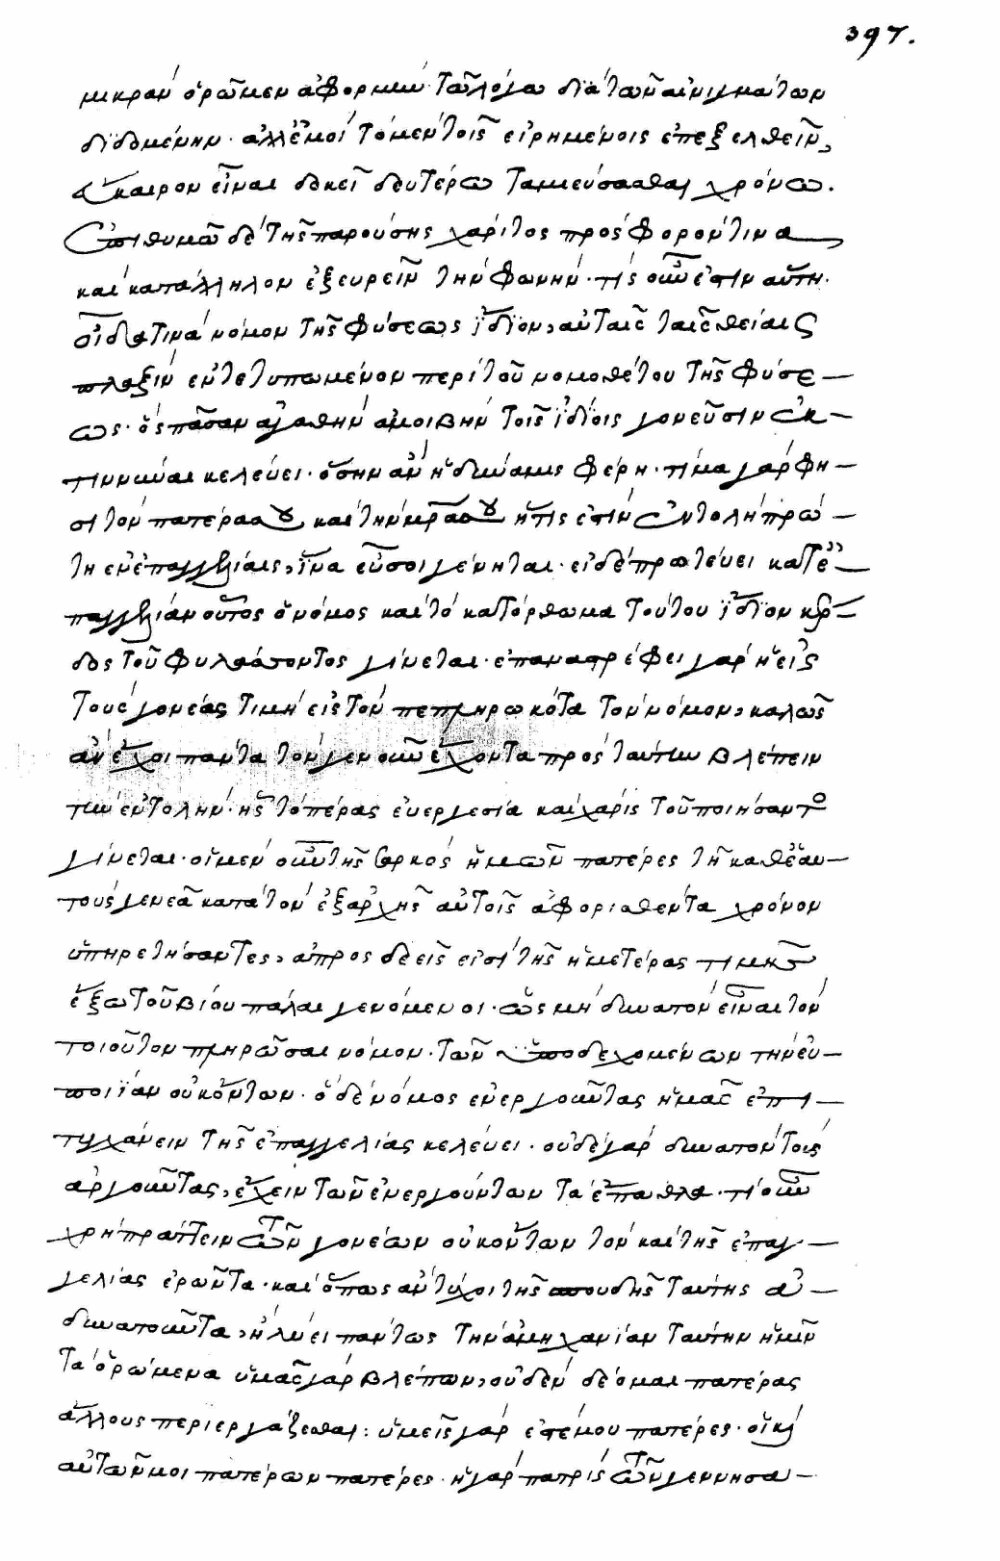 397.
μικρὰν ὁρῶμεν ἀφορμὴν τῶ λόγω διὰ τῶν αἰνιγμάτων
διδομένην· ἀλλ' ἐμοὶ τὸ μὲν τοῖς εἰρημένοις ἐπεξελθεῖν,
εὔκαιρον εἶναι δοκεῖ δευτέρω ταμιεύσασθαι χρόνω.
ἐπιθυμῶ δὲ τῆς παρούσης χάριτος πρόσφορόν τινα
καὶ κατάλληλον ἐξευρεῖν τὴν φωνήν· τίς οὖν ἐστιν αὕτη·
οἶδά τινα νόμον τῆς φύσεως ἴδιον, αὐταῖς ταῖς θείαις
πλαξὶν ἐντετυπωμένον περὶ τοῦ νομοθέτου τῆς φύσε-
ως· ὃς πᾶσαν ἀγαθὴν ἀμοιβὴν τοῖς ἰδίοις γονεῦσιν ἐκ-
τιννύναι κελεύει· ὅσην ἂν ἡ δύναμις φέρη· τίμα γάρ φη-
σι τὸν πατέρα σου καὶ τὴν μρα σου ἥτις ἐστὶν ἐντολὴ πρώ-
τη ἐν ἐπαγγελίαις, ἵνα εὖ σοι γένηται· εἰ δὲ πρωτεύει κατ' ἐ-
παγγελίαν οὗτος ὁ νόμος καὶ τὸ κατόρθωμα τούτου ἴδιον κέρ-
δος τοῦ φυλάσσοντος γίνεται· ἐπαναστρέφει γὰρ ἡ εἰς
τοὺς γονέας τιμὴ εἰς τὸν πεπληρωκότα τὸν νόμον, καλῶς
ἂν ἔχοι πάντα τὸν γε νοῦν ἔχοντα πρὸς ταύτην βλέπειν
τὴν ἐντολήν· ἧς τὸ πέρας εὐεργεσία καὶ χάρις τοῦ ποιήσαντο
γίνεται· οἱ μὲν οὖν τῆς σαρκὸς ἡμῶν πατέρες τῆ καθ' ἑαυ-
τοὺς γενεᾶ κατὰ τὸν ἐξ ἀρχῆς αὐτοῖς ἀφορισθέντα χρόνον
ὑπηρετήσαντες, ἀπροσδεεῖς εἰσὶ τῆς ἡμετέρας τιμῆς
ἔξω τοῦ βίου πάλαι γενόμενοι· ὡς μὴ δυνατὸν εἶναι τὸν
τοιοῦτον πληρῶσαι νόμον· τῶν ὑποδεχομένων τὴν εὐ-
ποιΐαν οὐκ ὄντων· ὁ δὲ νόμος ἐνεργοῦντας ἡμᾶς ἐπι-
τυχάνειν τῆς ἐπαγγελίας κελεύει· οὐδὲ γὰρ δυνατὸν τοῖς
ἀργοῦντας, ἔχειν τῶν ἐνεργούντων τὰ ἔπαθλα· τί οὖν
χρὴ πράττειν τῶν γονέων οὐκ ὄντων τὸν καὶ τῆς ἐπαγ-
γελίας ἐρῶντα· καὶ ὅπως ἂν τύχοι τῆς σπουδῆς ταύτης ἀ-
δυνατοῦντα, ἢ λύει πάντως τὴν ἀμηχανίαν ταύτην ἡμῖν
τὰ ὁρώμενα ὑμᾶς γὰρ βλέπων, οὐδὲν δέομαι πατέρας
ἄλλους περιεργάζεσθαι: ὑμεῖς γάρ ἐστέ μου πατέρες· οἱ καὶ
αὐτῶν μοι πατέρων πατέρες· ἡ γὰρ πατρὶς τῶν γεννησα-